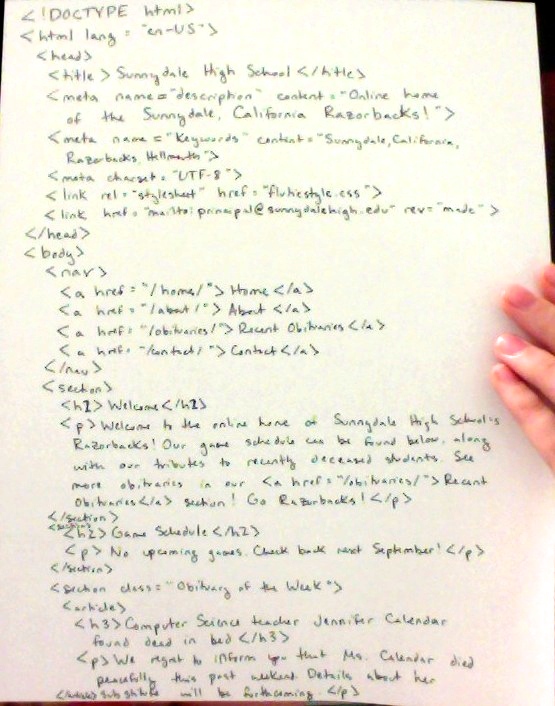 <!DOCTYPE html>
<html lang = "en-US">
<head>
<title> Sunnydale High School </title>
<meta name="description" content="Online home
of the Sunnydale, California Razorbacks!">
<meta name="Keywords" content="Sunnydale, California,
Razorbacks, Hellmouth">
<meta charset="UTF-8">
<link rel="stylesheet" href="flutiestyle.css">
<link href="mailto:principal@sunnydalehigh.edu" rev="made">
</head>
<body>
<nav>
<a href="/home/"> Home </a>
<a href="/about/"> About </a>
<a href="/obituaries/"> Recent Obituaries </a>
<a href="/contact/"> Contact </a>
</nav>
<section>
<h2> Welcome </h2>
<p> Welcome to the online home of Sunnydale High School's
Razorbacks! Our game schedule can be found below, along
with our tributes to recently deceased students. See
more obituaries in our <a href="/obituaries/"> Recent
Obituaries </a> section! Go Razorbacks! </p>
</section>
<section>
<h2> Game Schedule </h2>
<p> No upcoming games. Check back next September! </p>
</section>
<section class="Obituary of the Week">
<article>
<h3> Computer Science teacher Jennifer Calendar
found dead in bed </h3>
<p> We regret to inform you that Ms. Calendar died
peacefully this past weekend. Details about her
</article> substitute will be forthcoming </p>